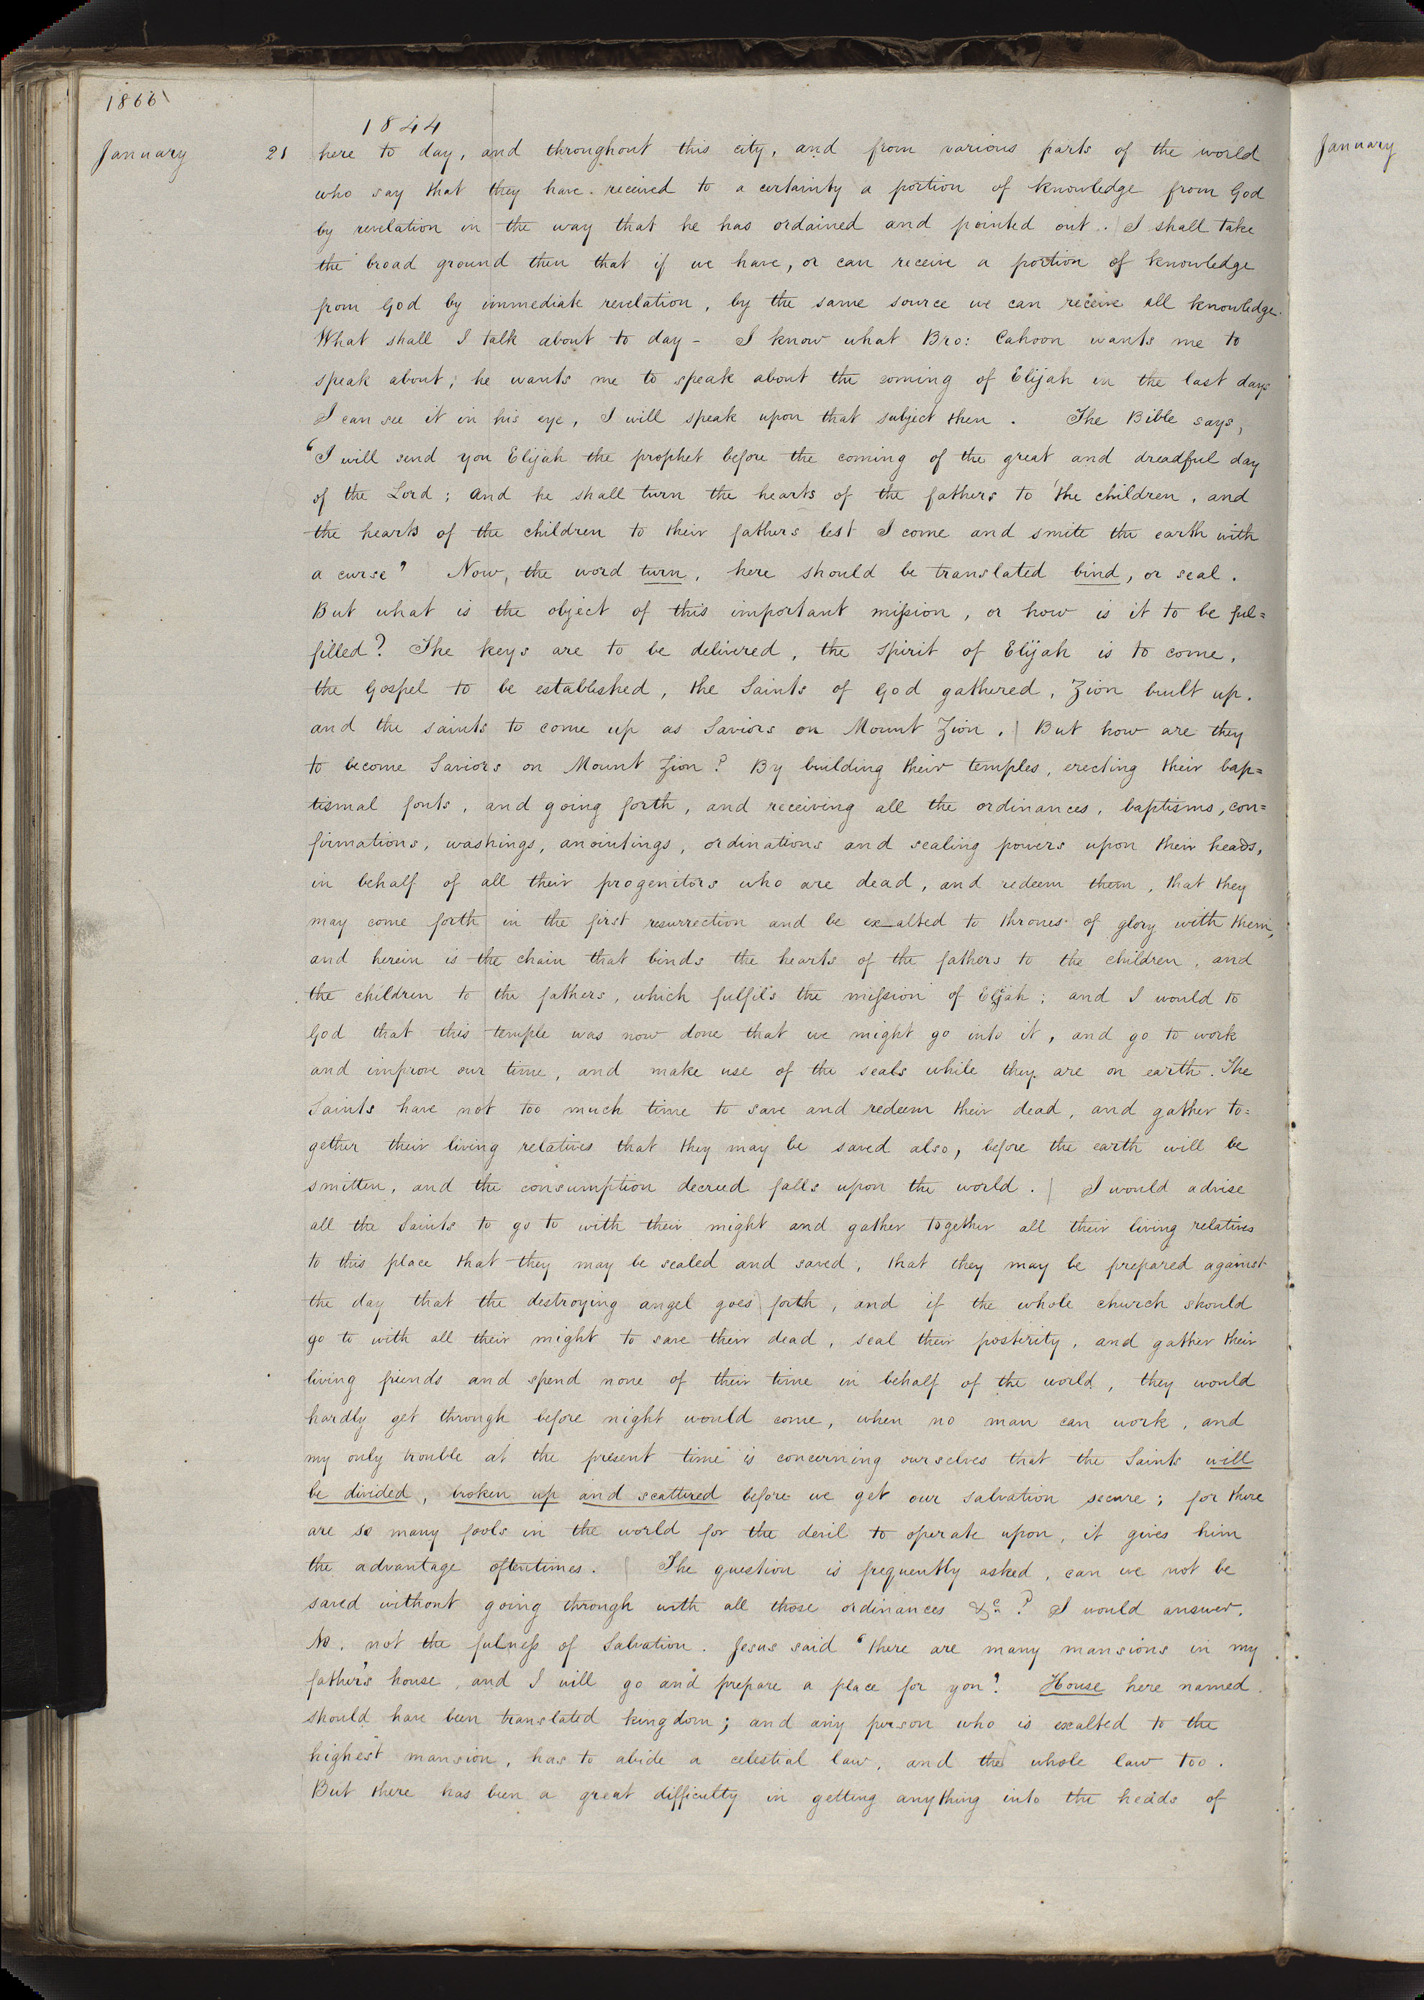 1866
1844
January 21 here to day, and throughout this city, and from various parts of the world
who say that they have received to a certainty a portion of knowledge from God
by revelation in the way that he has ordained and pointed out. I shall take
the broad ground then that if we have, or can receive a portion of knowledge
from God by immediate revelation, by the same source we can receive all knowledge.
What shall I talk about to day - I know what Bro: Cahoon wants me to
speak about; he wants me to speak about the coming of Elijah in the last days
I can see it in his eye, I will speak upon that subject then. The Bible says,
"I will send you Elijah the prophet before the coming of the great and dreadful day
of the Lord; and he shall turn the hearts of the fathers to the children, and
the hearts of the children to their fathers lest I come and smite the earth with
a curse" Now, the word turn, here should be translated bind, or seal.
But what is the object of this important mission, or how is it to be ful=
filled? The keys are to be delivered, the spirit of Elijah is to come,
the Gospel to be established, the Saints of God gathered, Zion built up,
and the saints to come up as Saviors on Mount Zion. | But how are they
to become Saviors on Mount Zion? By building their temples, erecting their bap=
tismal fonts, and going forth, and receiving all the ordinances, baptisms, con=
firmations, washings, anointings, ordinations and sealing powers upon their heads,
in behalf of all their progenitors who are dead, and redeem them, that they
may come forth in the first resurrection and be exalted to thrones of glory with them,
and herein is the chain that binds the hearts of the fathers to the children, and
the children to the fathers, which fulfils the mission of Elijah; and I would to
God that this temple was now done that we might go into it, and go to work
and improve our time, and make use of the seals while they are on earth. The
Saints have not too much time to save and redeem their dead, and gather to=
gether their living relatives that they may be saved also, before the earth will be
smitten, and the consumption decreed falls upon the world. | I would advise
all the Saints to go to with their might and gather together all their living relatives
to this place that they may be sealed and saved, that they may be prepared against
the day that the destroying angel goes forth, and if the whole church should
go to with all their might to save their dead, seal their posterity, and gather their
living friends and spend none of their time in behalf of the world, they would
hardly get through before night would come, when no man can work, and
my only trouble at the present time is concerning ourselves that the Saints will
be divided, broken up and scattered before we get our salvation secure; for there
are so many fools in the world for the devil to operate upon, it gives him
the advantage oftentimes. | The question is frequently asked, can we not be
saved without going through with all those ordinances &c? I would answer.
No. not the fulness of Salvation. Jesus said "there are many mansions in my
father's house, and I will go and prepare a place for you". House here named
should have been translated kingdom; and any person who is exalted to the
highest mansion, has to abide a celestial law, and the whole law too.
But there has been a great difficulty in getting anything into the heads of
January